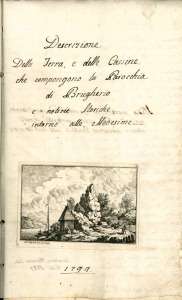 Descrizione
Della Terra, e delle Cassine
che compongono la Parocchia
di Brugherio
e notizie Storiche
intorno alle Medesime
1794